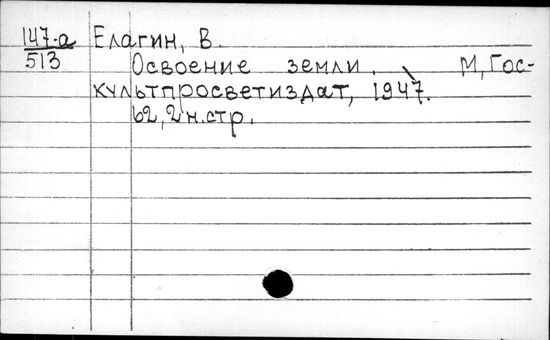 147-а Елагин, В.
513
Освоение земли. М, Гос-
культпросветиздат, 1947.
62, 2 н.стр.